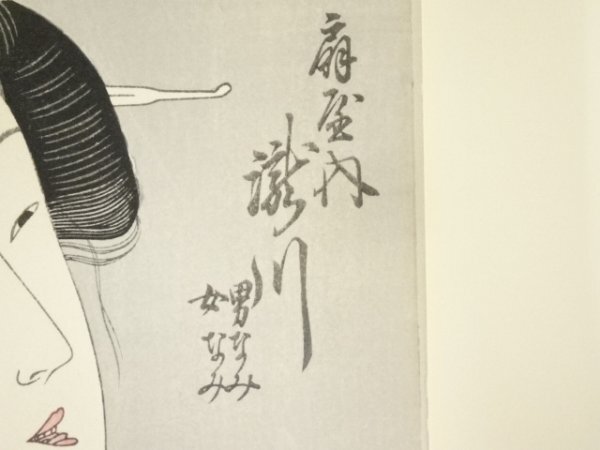 扇屋内
瀧川
男なみ
女なみ